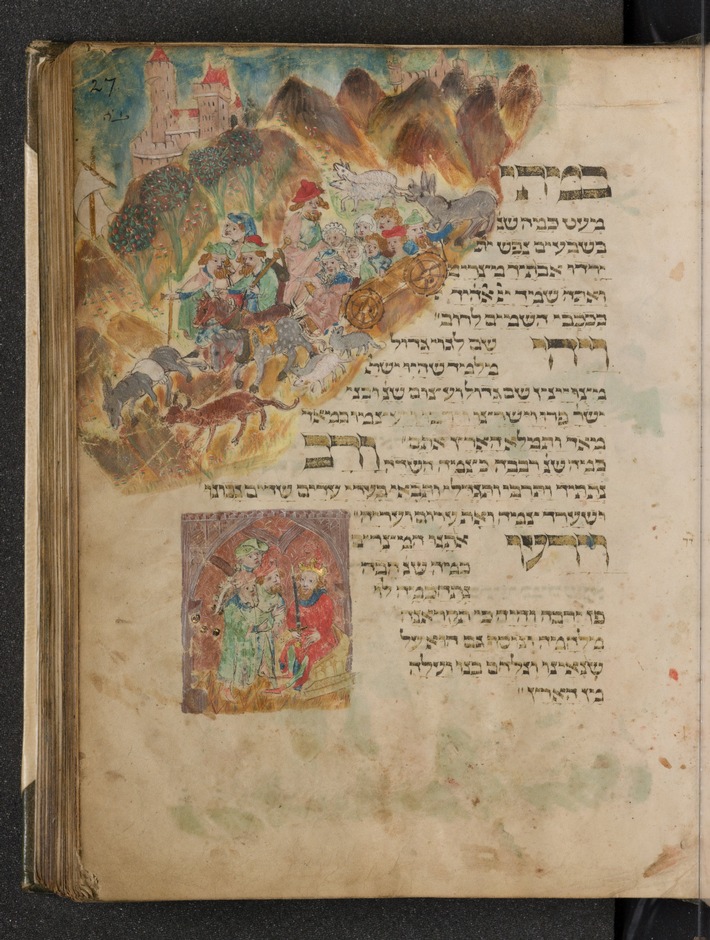 27
במתי
מעט כמה שנ
בשבעים נפש יר
ירדו אבתיך מצרימ
ועתה שמיך יי אלהיך
ככוכבי השמים לרוב״
ויהי שם לגוי גדול
מלמד שהיו ישר
מצוייניץ שם גדול ועצום שנ׳ ובני
ישר פרו וישרצו וירבו ויעצמו במאד
מאד ותמלא הארץ אתם״ ורב
כמה שנ׳ רבבה כצמח השדה
נתתיך ותרבי ותגדלי ותבאי בעדי עדיים שדיים נכונו
ושעריך צמח ואת ערום ועריה״
וירעו אתנו המצרים
כמה שנ׳ הבה
נתחכמה לו
פן ירבה והיה כי תקראנה
מלחמה ונוסף גם הוא על
שנאינו ונלחם בנו ועלה
מן הארץ״